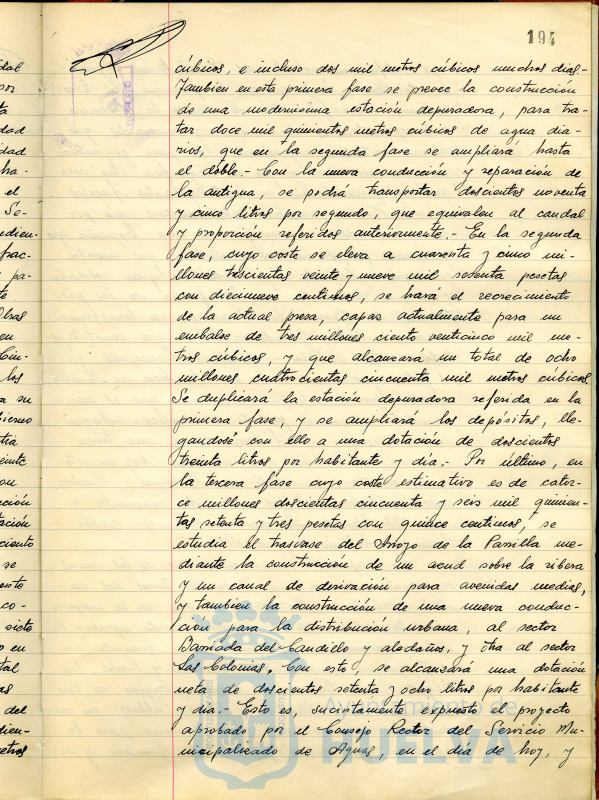 194
cúbicos, e incluso dos mil metros cúbicos muchos dias.-
Tambien en esta primera fase se prevee la construcción
de una modernisima estación depuradora, para tra-
tar doce mil quinientos metros cúbicos de agua dia-
rios, que en la segunda fase se ampliará hasta
el doble.- Con la nueva conducción y reparación de
la antigua, se podrá transportar doscientos noventa
y cinco litros por segundo, que equivalen al caudal
y proporción referidos anteriormente.- En la segunda
fase, cuyo coste se eleva a cuarenta y cinco mi-
llones trescientas veinte y nueve mil sesenta pesetas
con diecinueve centimos, se hará el recrecimiento
de la actual presa, capaz actualmente para un
embalse de tres millones ciento venticinco mil me-
tros cúbicos, y que alcanzará un total de ocho
millones cuatrocientas cincuenta mil metros cúbicos
Se duplicará la estación depuradora referida en la
primera fase, y se ampliará los depósitos, lle-
gandosé con ello a una dotación de doscientos
treinta litros por habitante y dia.- Por último, en
la tercera fase cuyo coste estimativo es de cator-
ce millones doscientas cincuenta y seis mil quinien-
tas setenta y tres pesetas con quince centimos, se
estudia el trasvase del Arroyo de la Parrilla me-
diante la construcción de un azud sobre la ribera
y un canal de derivación para avenidas medias,
y tambien la construcción de una nueva conduc-
ción para la distribución urbana, al sector
Barriada del Candillo y aledaños, y otra al sector
Las Colonias, Con esto, se alcanzará una dotación
neta de doscientos setenta y ocho litros por habitante
y dia.- Esto es, sucintamente expuesto el proyecto
aprobado por el Consejo Rector del Servicio Mu-
nicipalizado de Aguas, en el dia de hoy, y
Ayuntamiento de
HUELVA